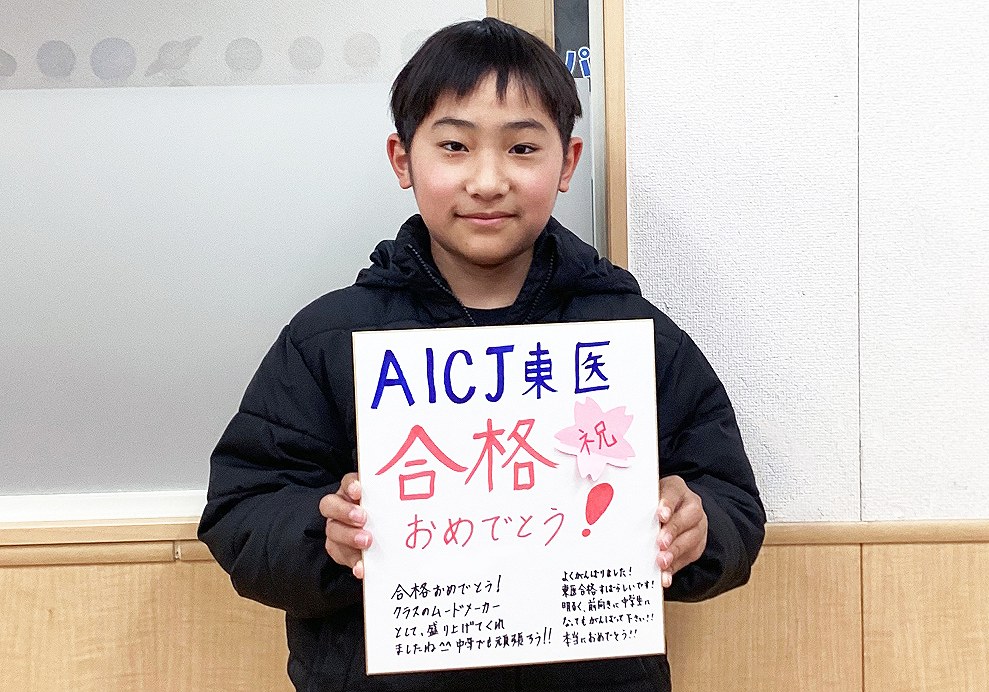 AICJ東医
合格
祝
おめでとう!
合格おめでとう!
クラスのムードメーカー
として、盛り上げてくれ
ましたね^^ 中学でも頑張ろう!!
よくがんばりました!
東医合格すばらしいです!
明るく、前向きに中学生に
なってもがんばって下さい!!
本当におめでとう!!